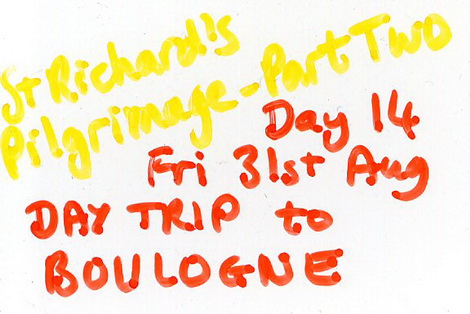 St Richard's
Pilgrimage - Part Two
Day 14
Fri 31st Aug
DAY TRIP to
BOULOGNE